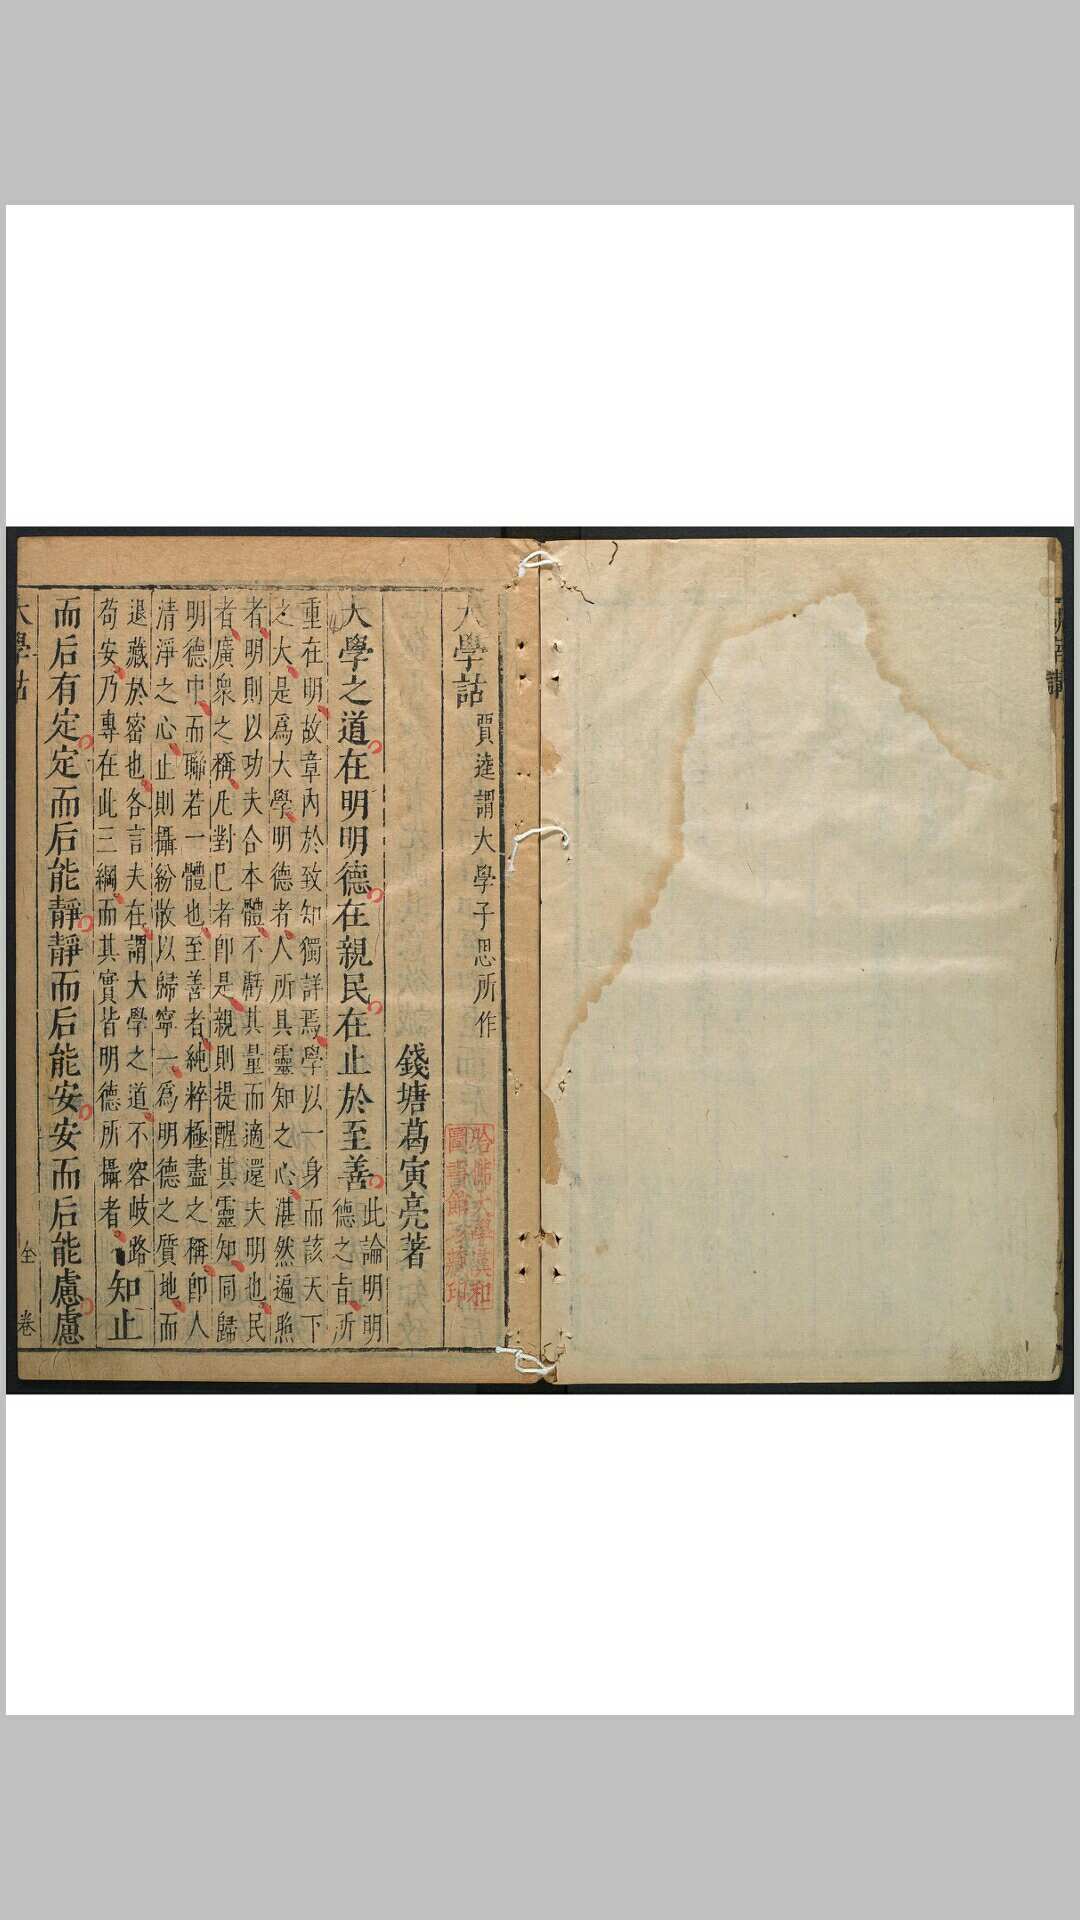 大學詁 賈逵謂大學子思所作
哈佛大學漢和
圖書館珍藏印
錢塘葛寅亮著
大學之道在明明德在親民在止於至善
此論明明
德之旨所
重在明故章內於致知獨詳焉學以一身而該天下
之大是爲大學明德者人所具靈知之心湛然遍照
者明則以功夫合本體不虧其量而適還夫明也民
者廣衆之稱凡對巳者卽是親則提醒其靈知同歸
明德中而聯若一體也至善者純粹極盡之稱卽人
清淨之心止則攝紛散以歸寧一爲明德之質地而
退藏於密也各言夫在謂大學之道不容岐路
苟安乃專在此三綱而其實皆明德所攝者
知止
而后有定定而后能靜靜而后能安安而后能慮慮
大學詁 全 卷